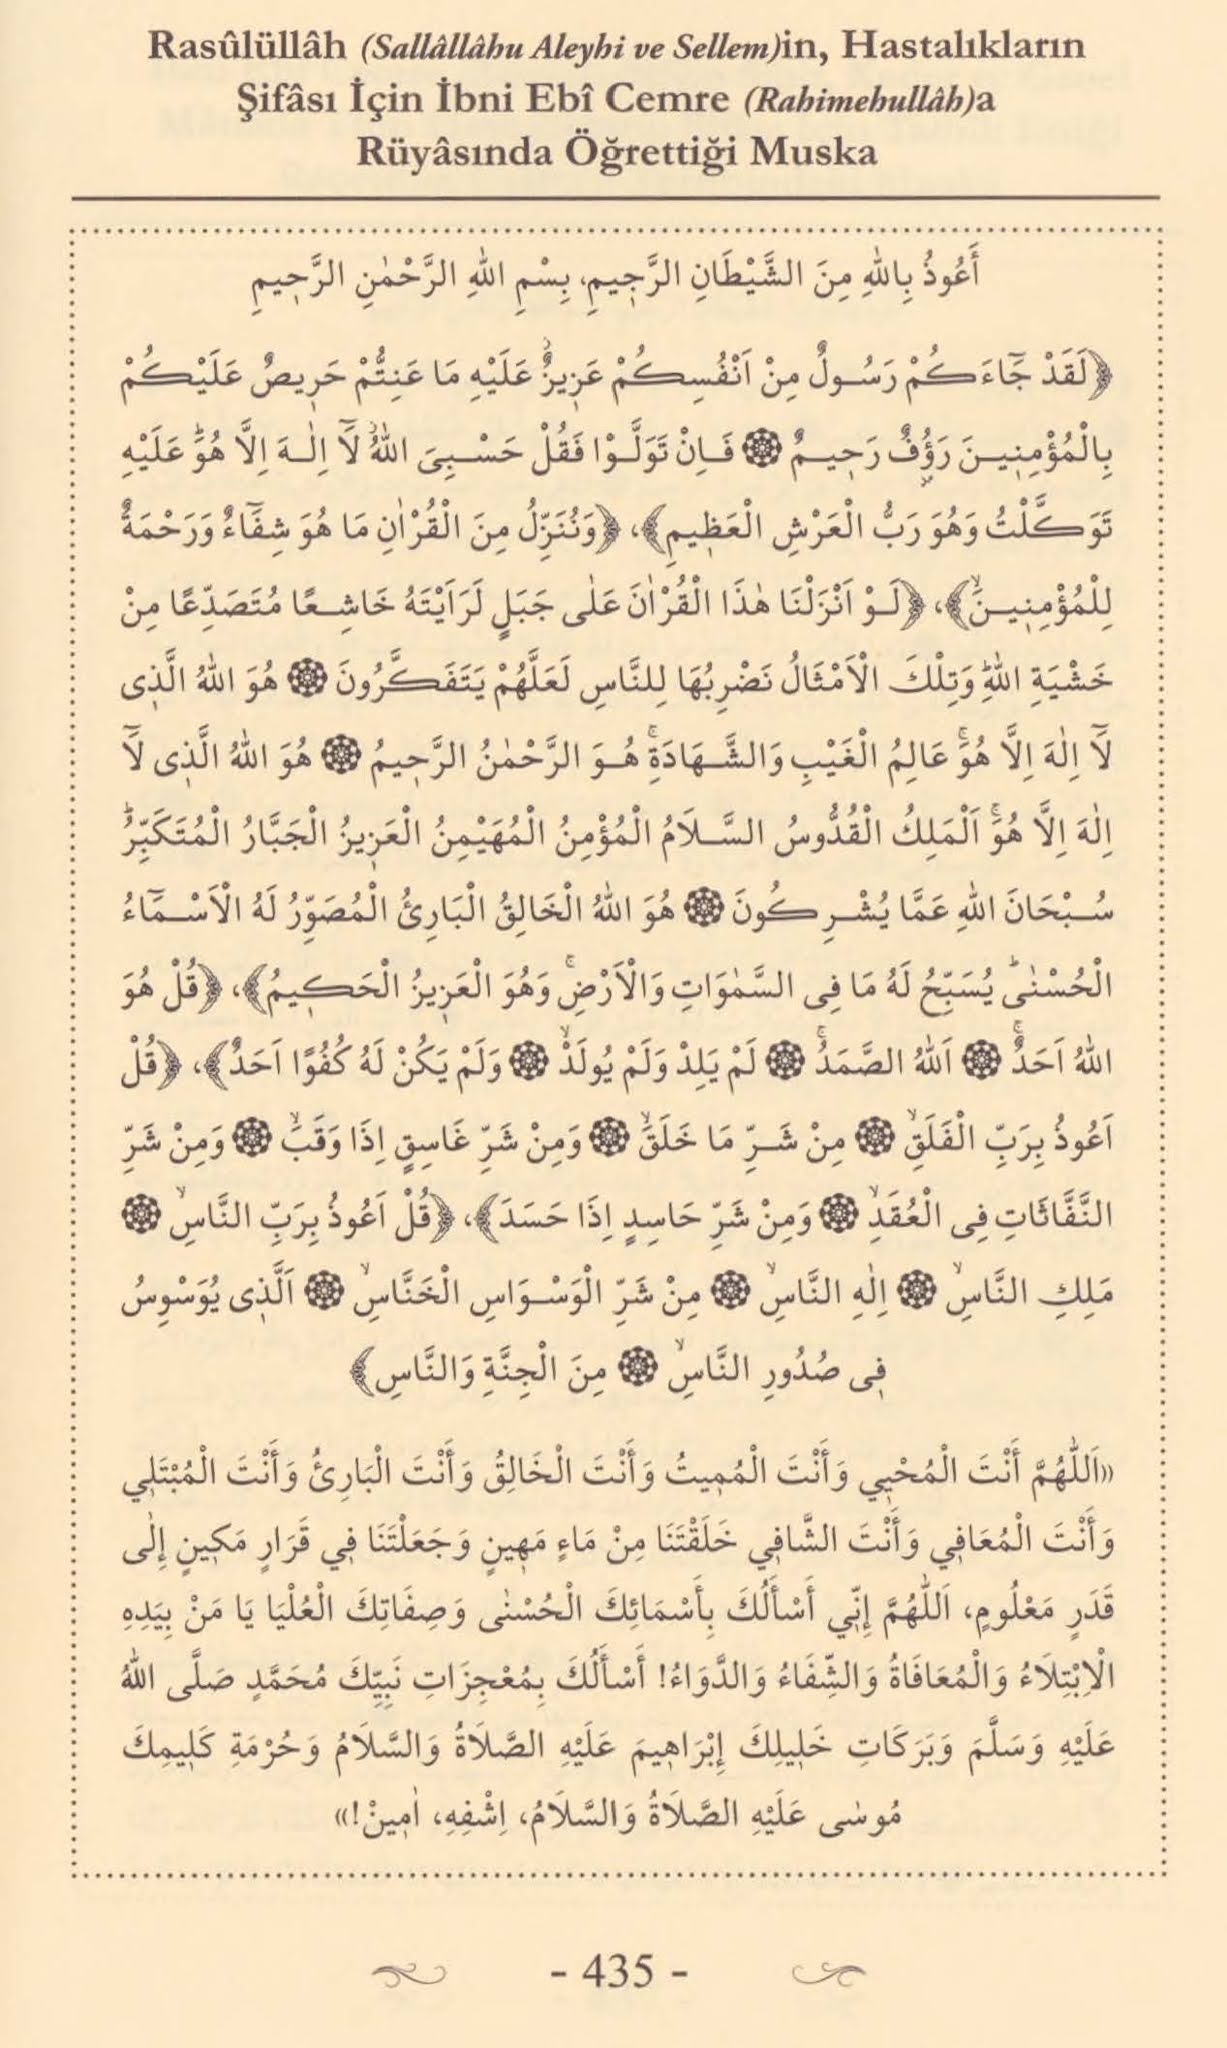 Rasûlüllâh (Sallâllâhu Aleyhi ve Sellem)in, Hastalıkların
Şifâsı İçin İbni Ebî Cemre (Rahimehullâh)a
Rüyâsında Öğrettiği Muska
أَعُوذُ بِاللّٰهِ مِنَ الشَّيْطَانِ الرَّجِيمِ، بِسْمِ اللّٰهِ الرَّحْمٰنِ الرَّحِيمِ
﴿لَقَدْ جَٓاءَكُمْ رَسُولٌ مِنْ اَنْفُسِكُمْ عَزِيزٌۘ عَلَيْهِ مَا عَنِتُّمْ حَرِيصٌ عَلَيْكُمْ
بِالْمُؤْمِنِينَ رَؤُ۫فٌ رَحِيمٌ ۞ فَاِنْ تَوَلَّوْا فَقُلْ حَسْبِيَ اللّٰهُۘ لَٓا اِلٰهَ اِلَّا هُوَۜ عَلَيْهِ
تَوَكَّلْتُ وَهُوَ رَبُّ الْعَرْشِ الْعَظِيمِ﴾، ﴿وَنُنَزِّلُ مِنَ الْقُرْاٰنِ مَا هُوَ شِفَٓاءٌ وَرَحْمَةٌ
لِلْمُؤْمِنِينَۙ﴾، ﴿لَوْ اَنْزَلْنَا هٰذَا الْقُرْاٰنَ عَلٰى جَبَلٍ لَرَاَيْتَهُ خَاشِعًا مُتَصَدِّعًا مِنْ
خَشْيَةِ اللّٰهِۜ وَتِلْكَ الْاَمْثَالُ نَضْرِبُهَا لِلنَّاسِ لَعَلَّهُمْ يَتَفَكَّرُونَ ۞ هُوَ اللّٰهُ الَّذِى
لَٓا اِلٰهَ اِلَّا هُوَۚ عَالِمُ الْغَيْبِ وَالشَّهَادَةِۚ هُوَ الرَّحْمٰنُ الرَّحِيمُ ۞ هُوَ اللّٰهُ الَّذِى لَٓا
اِلٰهَ اِلَّا هُوَۚ اَلْمَلِكُ الْقُدُّوسُ السَّلَامُ الْمُؤْمِنُ الْمُهَيْمِنُ الْعَزِيزُ الْجَبَّارُ الْمُتَكَبِّرُۜ
سُبْحَانَ اللّٰهِ عَمَّا يُشْرِكُونَ ۞ هُوَ اللّٰهُ الْخَالِقُ الْبَارِئُ الْمُصَوِّرُ لَهُ الْاَسْمَٓاءُ
الْحُسْنٰىۜ يُسَبِّحُ لَهُ مَا فِى السَّمٰوَاتِ وَالْاَرْضِۚ وَهُوَ الْعَزِيزُ الْحَكِيمُ﴾، ﴿قُلْ هُوَ
اللّٰهُ اَحَدٌۚ ۞ اَللّٰهُ الصَّمَدُۚ ۞ لَمْ يَلِدْ وَلَمْ يُولَدْۙ ۞ وَلَمْ يَكُنْ لَهُ كُفُوًا اَحَدٌ﴾، ﴿قُلْ
اَعُوذُ بِرَبِّ الْفَلَقِۙ ۞ مِنْ شَرِّ مَا خَلَقَۙ ۞ وَمِنْ شَرِّ غَاسِقٍ اِذَا وَقَبَۙ ۞ وَمِنْ شَرِّ
النَّفَّاثَاتِ فِى الْعُقَدِۙ ۞ وَمِنْ شَرِّ حَاسِدٍ اِذَا حَسَدَ﴾، ﴿قُلْ اَعُوذُ بِرَبِّ النَّاسِۙ ۞
مَلِكِ النَّاسِۙ ۞ اِلٰهِ النَّاسِۙ ۞ مِنْ شَرِّ الْوَسْوَاسِ الْخَنَّاسِۙ ۞ اَلَّذِى يُوَسْوِسُ
فِى صُدُورِ النَّاسِۙ ۞ مِنَ الْجِنَّةِ وَالنَّاسِ﴾
«اَللّٰهُمَّ أَنْتَ الْمُحْيِي وَأَنْتَ الْمُمِيتُ وَأَنْتَ الْخَالِقُ وَأَنْتَ الْبَارِئُ وَأَنْتَ الْمُبْتَلِي
وَأَنْتَ الْمُعَافِي وَأَنْتَ الشَّافِي خَلَقْتَنَا مِنْ مَاءٍ مَهِينٍ وَجَعَلْتَنَا فِي قَرَارٍ مَكِينٍ إِلٰى
قَدَرٍ مَعْلُومٍ، اَللّٰهُمَّ إِنِّي أَسْأَلُكَ بِأَسْمَائِكَ الْحُسْنٰى وَصِفَاتِكَ الْعُلْيَا يَا مَنْ بِيَدِهِ
الْاِبْتِلَاءُ وَالْمُعَافَاةُ وَالشِّفَاءُ وَالدَّوَاءُ! أَسْأَلُكَ بِمُعْجِزَاتِ نَبِيِّكَ مُحَمَّدٍ صَلَّى اللّٰهُ
عَلَيْهِ وَسَلَّمَ وَبَرَكَاتِ خَلِيلِكَ إِبْرَاهِيمَ عَلَيْهِ الصَّلَاةُ وَالسَّلَامُ وَحُرْمَةِ كَلِيمِكَ
مُوسٰى عَلَيْهِ الصَّلَاةُ وَالسَّلَامُ، اِشْفِهِ، اٰمِينْ!»
- 435 -